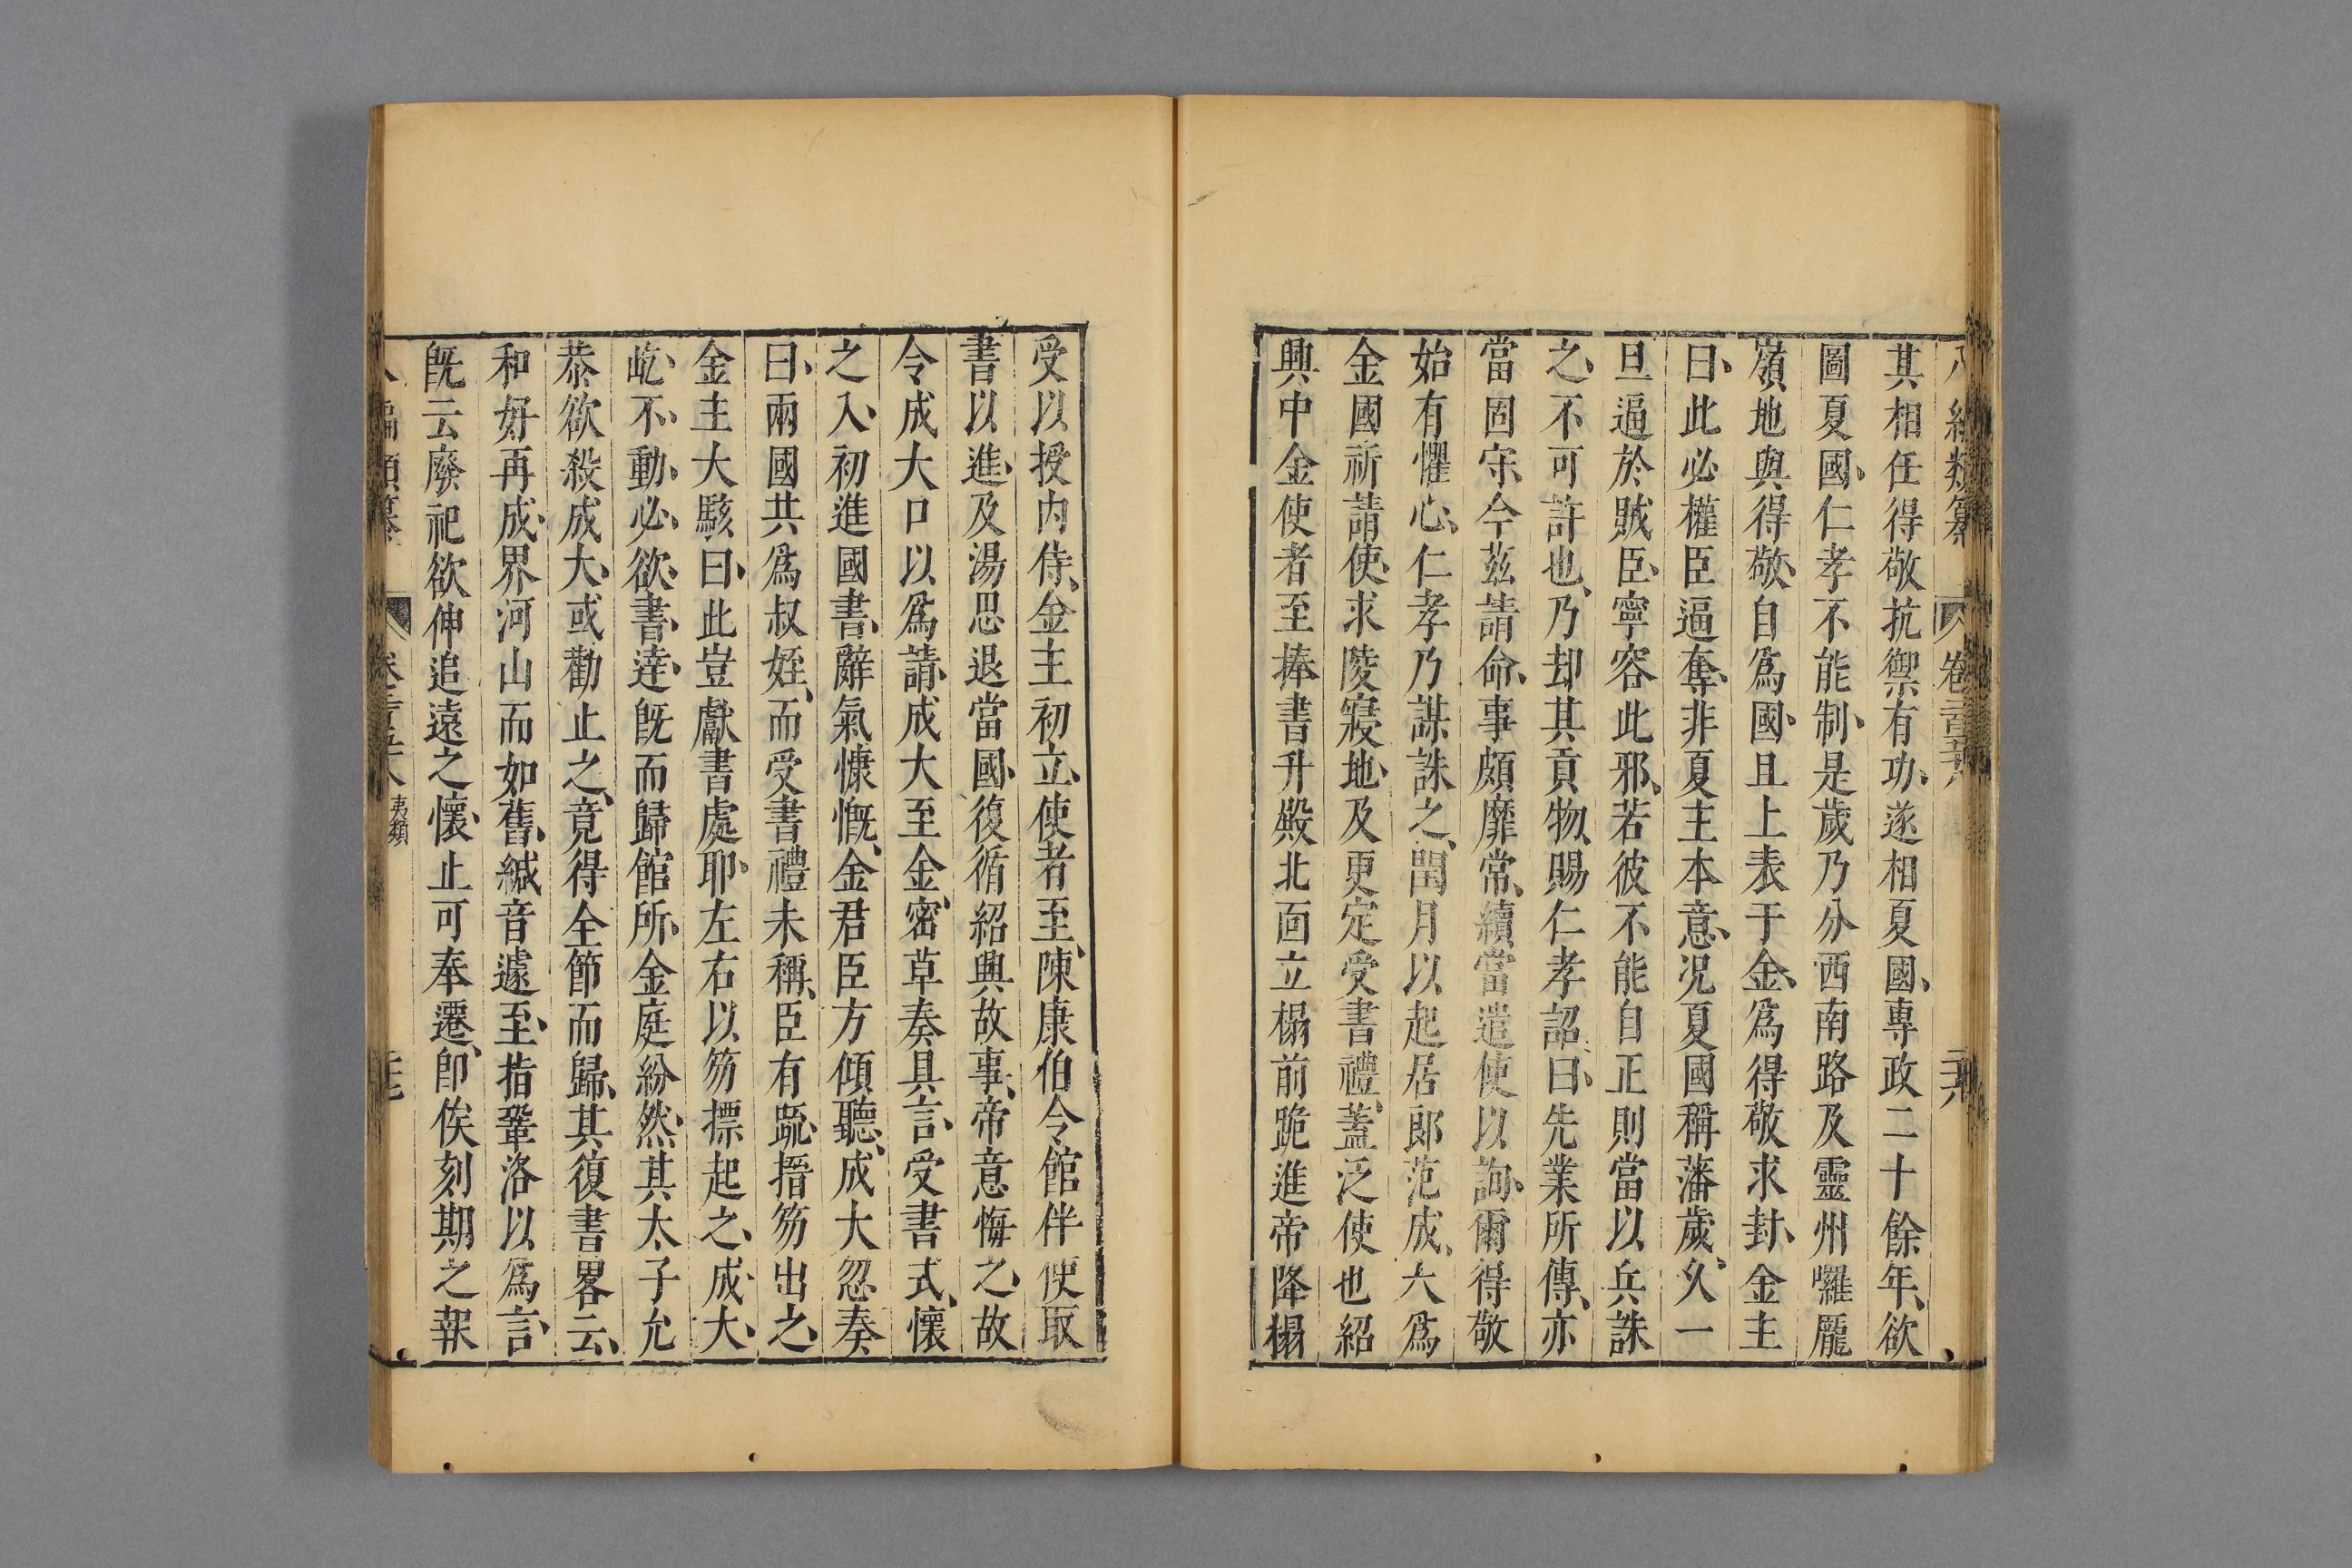 其相任得敬抗禦有功、遂相夏國、專政二十餘年、欲
圖夏國、仁孝不能制、是歲乃分西南路及靈州囉龐
嶺地與得敬、自爲國、且上表于金、爲得敬求封、金主
曰、此必權臣逼奪、非夏主本意、况夏國稱藩歲久、一
旦逼於賊臣、寧容此邪、若彼不能自正則當以兵誅
之、不可許也、乃却其貢物、賜仁孝詔曰、先業所傳、亦
當固守、今茲請命、事頗靡常、續當遣使以詢、爾得敬
始有懼心、仁孝乃謀誅之、閏月以起居郎范成大爲
金國祈請使、求陵寢地、及更定受書禮、蓋泛使也紹
興中金使者至捧書升殿北面立榻前跪進帝降榻
受以授内侍、金主初立、使者至、陳康伯令館伴使取
書以進、及湯思退當國、復循紹興故事、帝意悔之、故
令成大口以爲請、成大至金、密草奏具言、受書式、懷
之入、初進國書、辭氣慷慨、金君臣方傾聽、成大忽奏
曰、兩國共爲叔姪、而受書禮未稱、臣有疏、搢笏出之、
金主大駭曰、此豈獻書處耶、左右以笏摽起之、成大、
屹、不、動、必、欲、書、達、既而歸館所、金庭紛然、其太子允
恭欲殺成大、或勸止之、竟得全節而歸、其復書畧云、
和好再成、界河山而如舊、緘音遽至、指鞏洛以爲言、
既云廢祀欲伸追遠之懷、止可奉遷、卽俟刻期之報
夷類